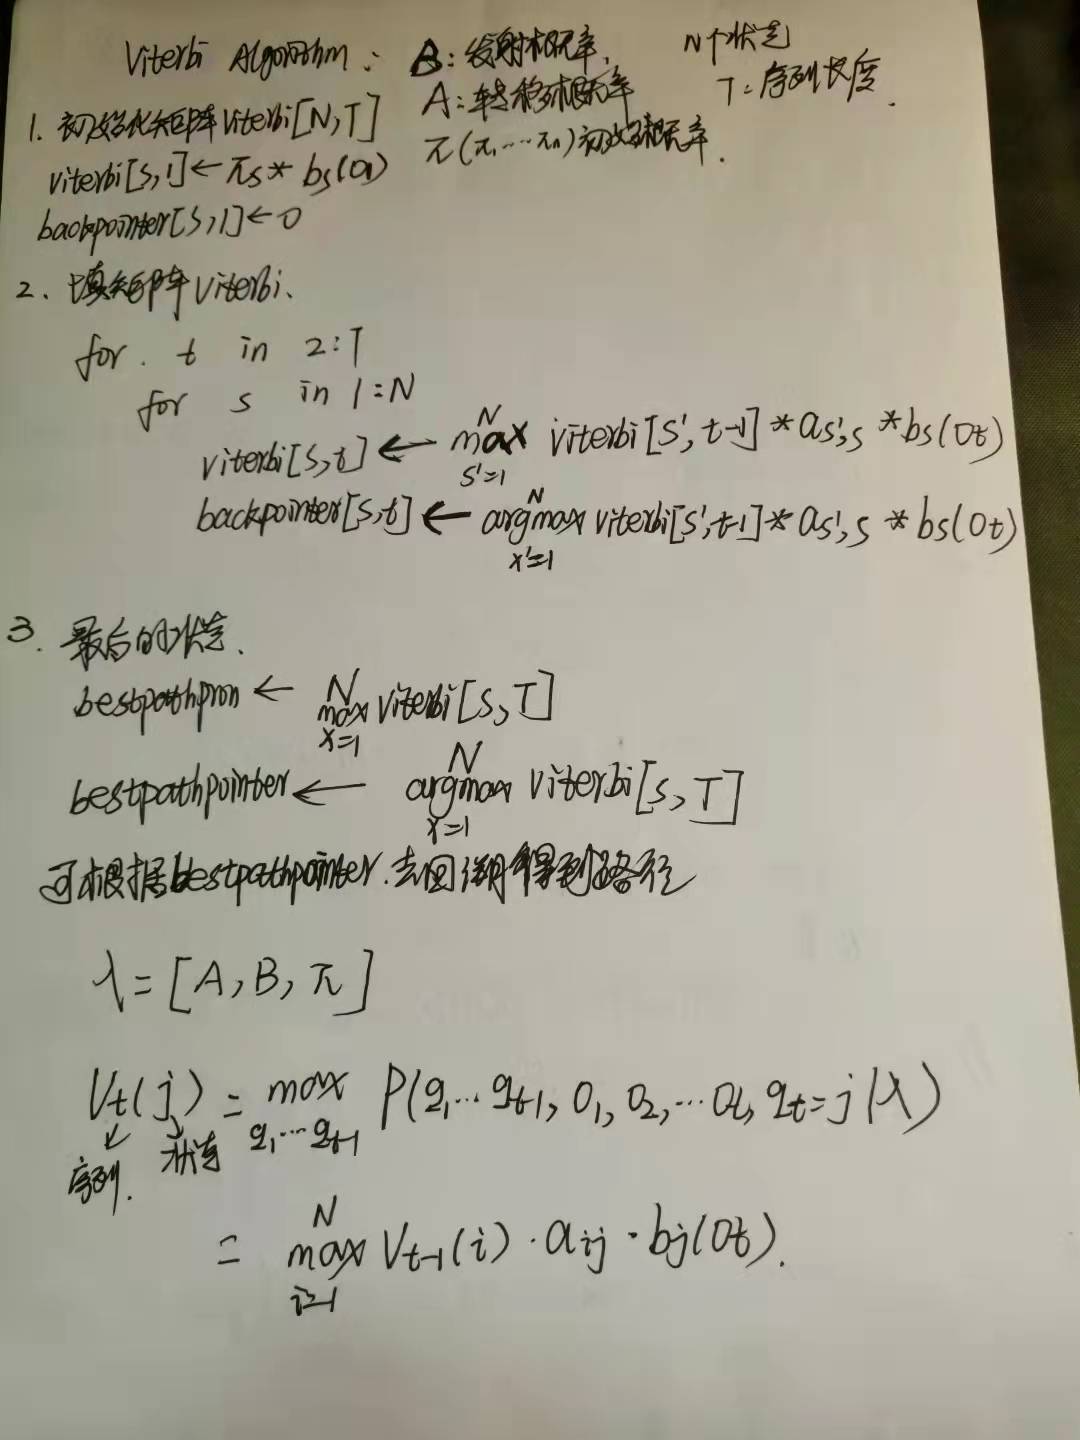 Viterbi Algorithm: B:发射概率. N个状态
A:转移概率 T:序列长度.
π(π₁...πn)初始概率.
1. 初始化矩阵Viterbi[N,T]
viterbi[s,1]←πs* bs(o1)
backpointer[s,1]←0
2. 填矩阵Viterbi.
for. t in 2:T
for s in 1:N
viterbi[s,t] ← max_{s'=1}^{N} viterbi[s',t-1]*as',s*bs(ot)
backpointer[s,t] ← argmax_{x'=1}^{N} viterbi[s',t-1]*as',s*bs(ot)
3. 最后的状态.
bestpathpron ← max_{x=1}^{N} viterbi[s,T]
bestpathpointer ← argmax_{x=1}^{N} viterbi[s,T]
可根据bestpathpointer.去回溯得到路径
λ=[A,B,π]
Vt(j) = max_{q₁...qt-1} P(q₁...qt-1,O₁,O₂,...Ot,qt=j|λ)
序列. 状态
= max_{i=1}^{N} Vt-1(i)·aij·bj(Ot).